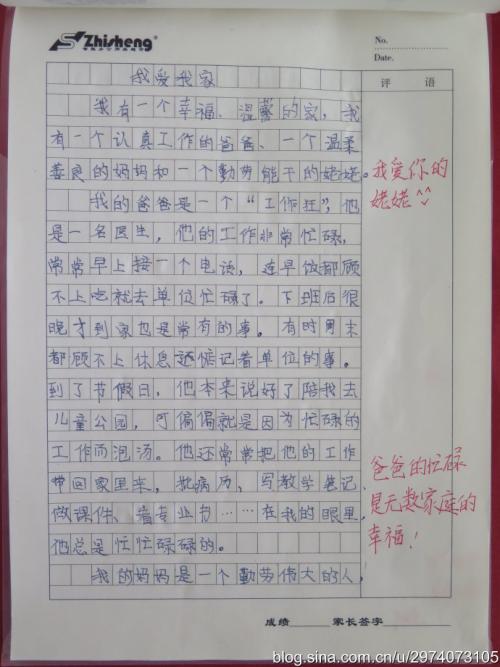 Zhisheng
No.
Date.
评 语
我爱我家
我有一个幸福、温馨的家，我
有一个认真工作的爸爸、一个温柔
善良的妈妈和一个勤劳能干的姥姥。
我爱你的
姥姥^^
我的爸爸是一个“工作狂”，他
是一名医生，他的工作非常忙碌，
常常早上接一个电话，连早饭都顾
不上吃就去单位忙碌了。下班后很
晚才到家也是常有的事。有时周末
都顾不上休息还惦记着单位的事。
到了节假日，他本来说好了陪我去
儿童公园，可偏偏就是因为忙碌的
工作而泡汤。他还常常把他的工作
带回家里来，批病历，写教学笔记，
做课件、看专业书……在我的眼里，
他总是忙忙碌碌的。
爸爸的忙碌
是无数家庭的
幸福！
我的妈妈是一个勤劳伟大的人，
成绩 家长签字
blog.sina.com.cn/u/2974073105